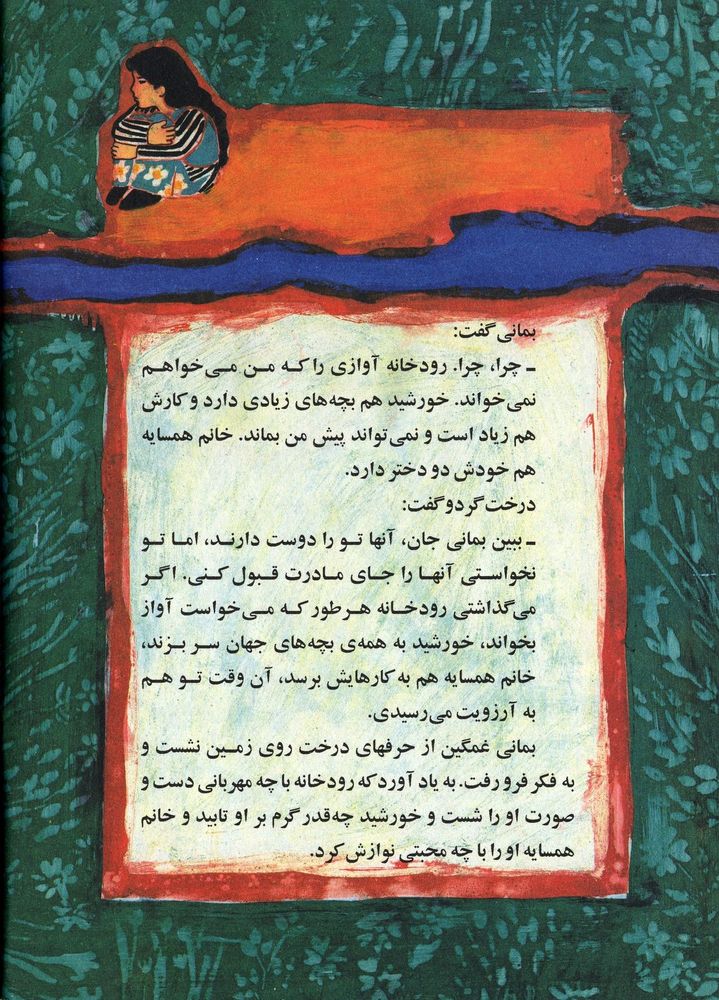 بمانی گفت:
ـ چرا، چرا. رودخانه آوازی را که من می‌خواهم
نمی‌خواند. خورشید هم بچه‌های زیادی دارد و کارش
هم زیاد است و نمی‌تواند پیش من بماند. خانم همسایه
هم خودش دو دختر دارد.
درخت گردو گفت:
ـ ببین بمانی جان، آنها تو را دوست دارند، اما تو
نخواستی آنها را جای مادرت قبول کنی. اگر
می‌گذاشتی رودخانه هر طور که می‌خواست آواز
بخواند، خورشید به همه‌ی بچه‌های جهان سر بزند،
خانم همسایه هم به کارهایش برسد، آن وقت تو هم
به آرزویت می‌رسیدی.
بمانی غمگین از حرفهای درخت روی زمین نشست و
به فکر فرو رفت. به یاد آورد که رودخانه با چه مهربانی دست و
صورت او را شست و خورشید چه‌قدر گرم بر او تابید و خانم
همسایه او را با چه محبتی نوازش کرد.